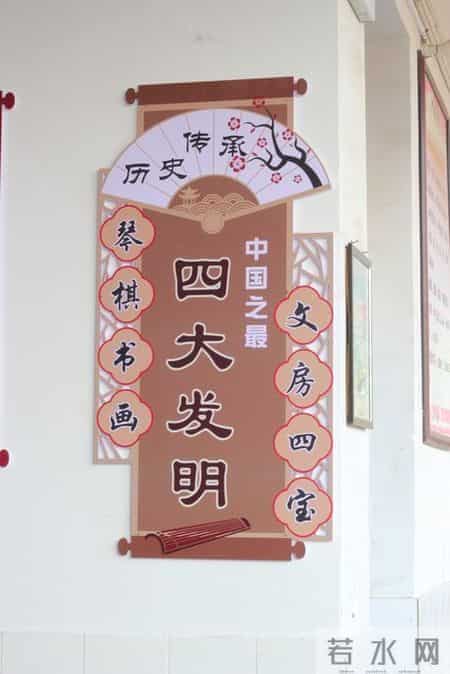 历史传承
中国之最
四大发明
琴棋书画
文房四宝
若水网